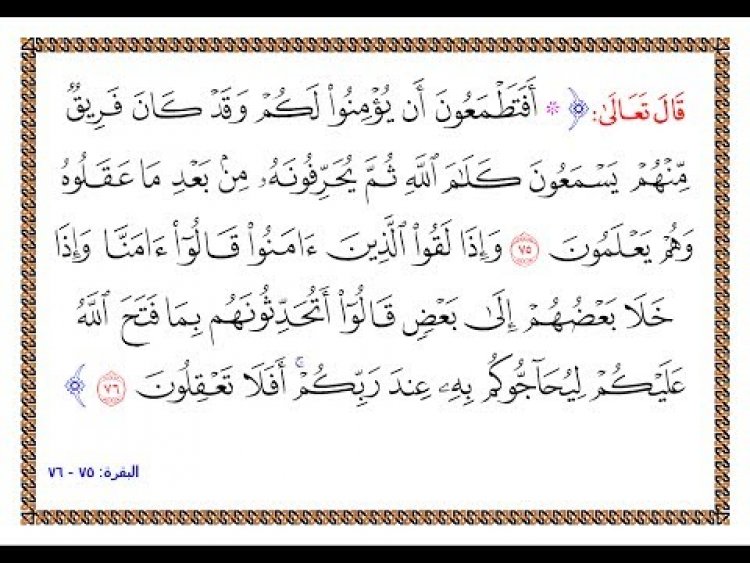 قَالَ تَعَالَىٰ: ﴿ ۞ أَفَتَطۡمَعُونَ أَن يُؤۡمِنُواْ لَكُمۡ وَقَدۡ كَانَ فَرِيقٞ
مِّنۡهُمۡ يَسۡمَعُونَ كَلَٰمَ ٱللَّهِ ثُمَّ يُحَرِّفُونَهُۥ مِنۢ بَعۡدِ مَا عَقَلُوهُ
وَهُمۡ يَعۡلَمُونَ ٧٥ وَإِذَا لَقُواْ ٱلَّذِينَ ءَامَنُواْ قَالُوٓاْ ءَامَنَّا وَإِذَا
خَلَا بَعۡضُهُمۡ إِلَىٰ بَعۡضٖ قَالُوٓاْ أَتُحَدِّثُونَهُم بِمَا فَتَحَ ٱللَّهُ
عَلَيۡكُمۡ لِيُحَآجُّوكُم بِهِۦ عِندَ رَبِّكُمۡۚ أَفَلَا تَعۡقِلُونَ ٧٦ ﴾
البقرة: ٧٥ - ٧٦